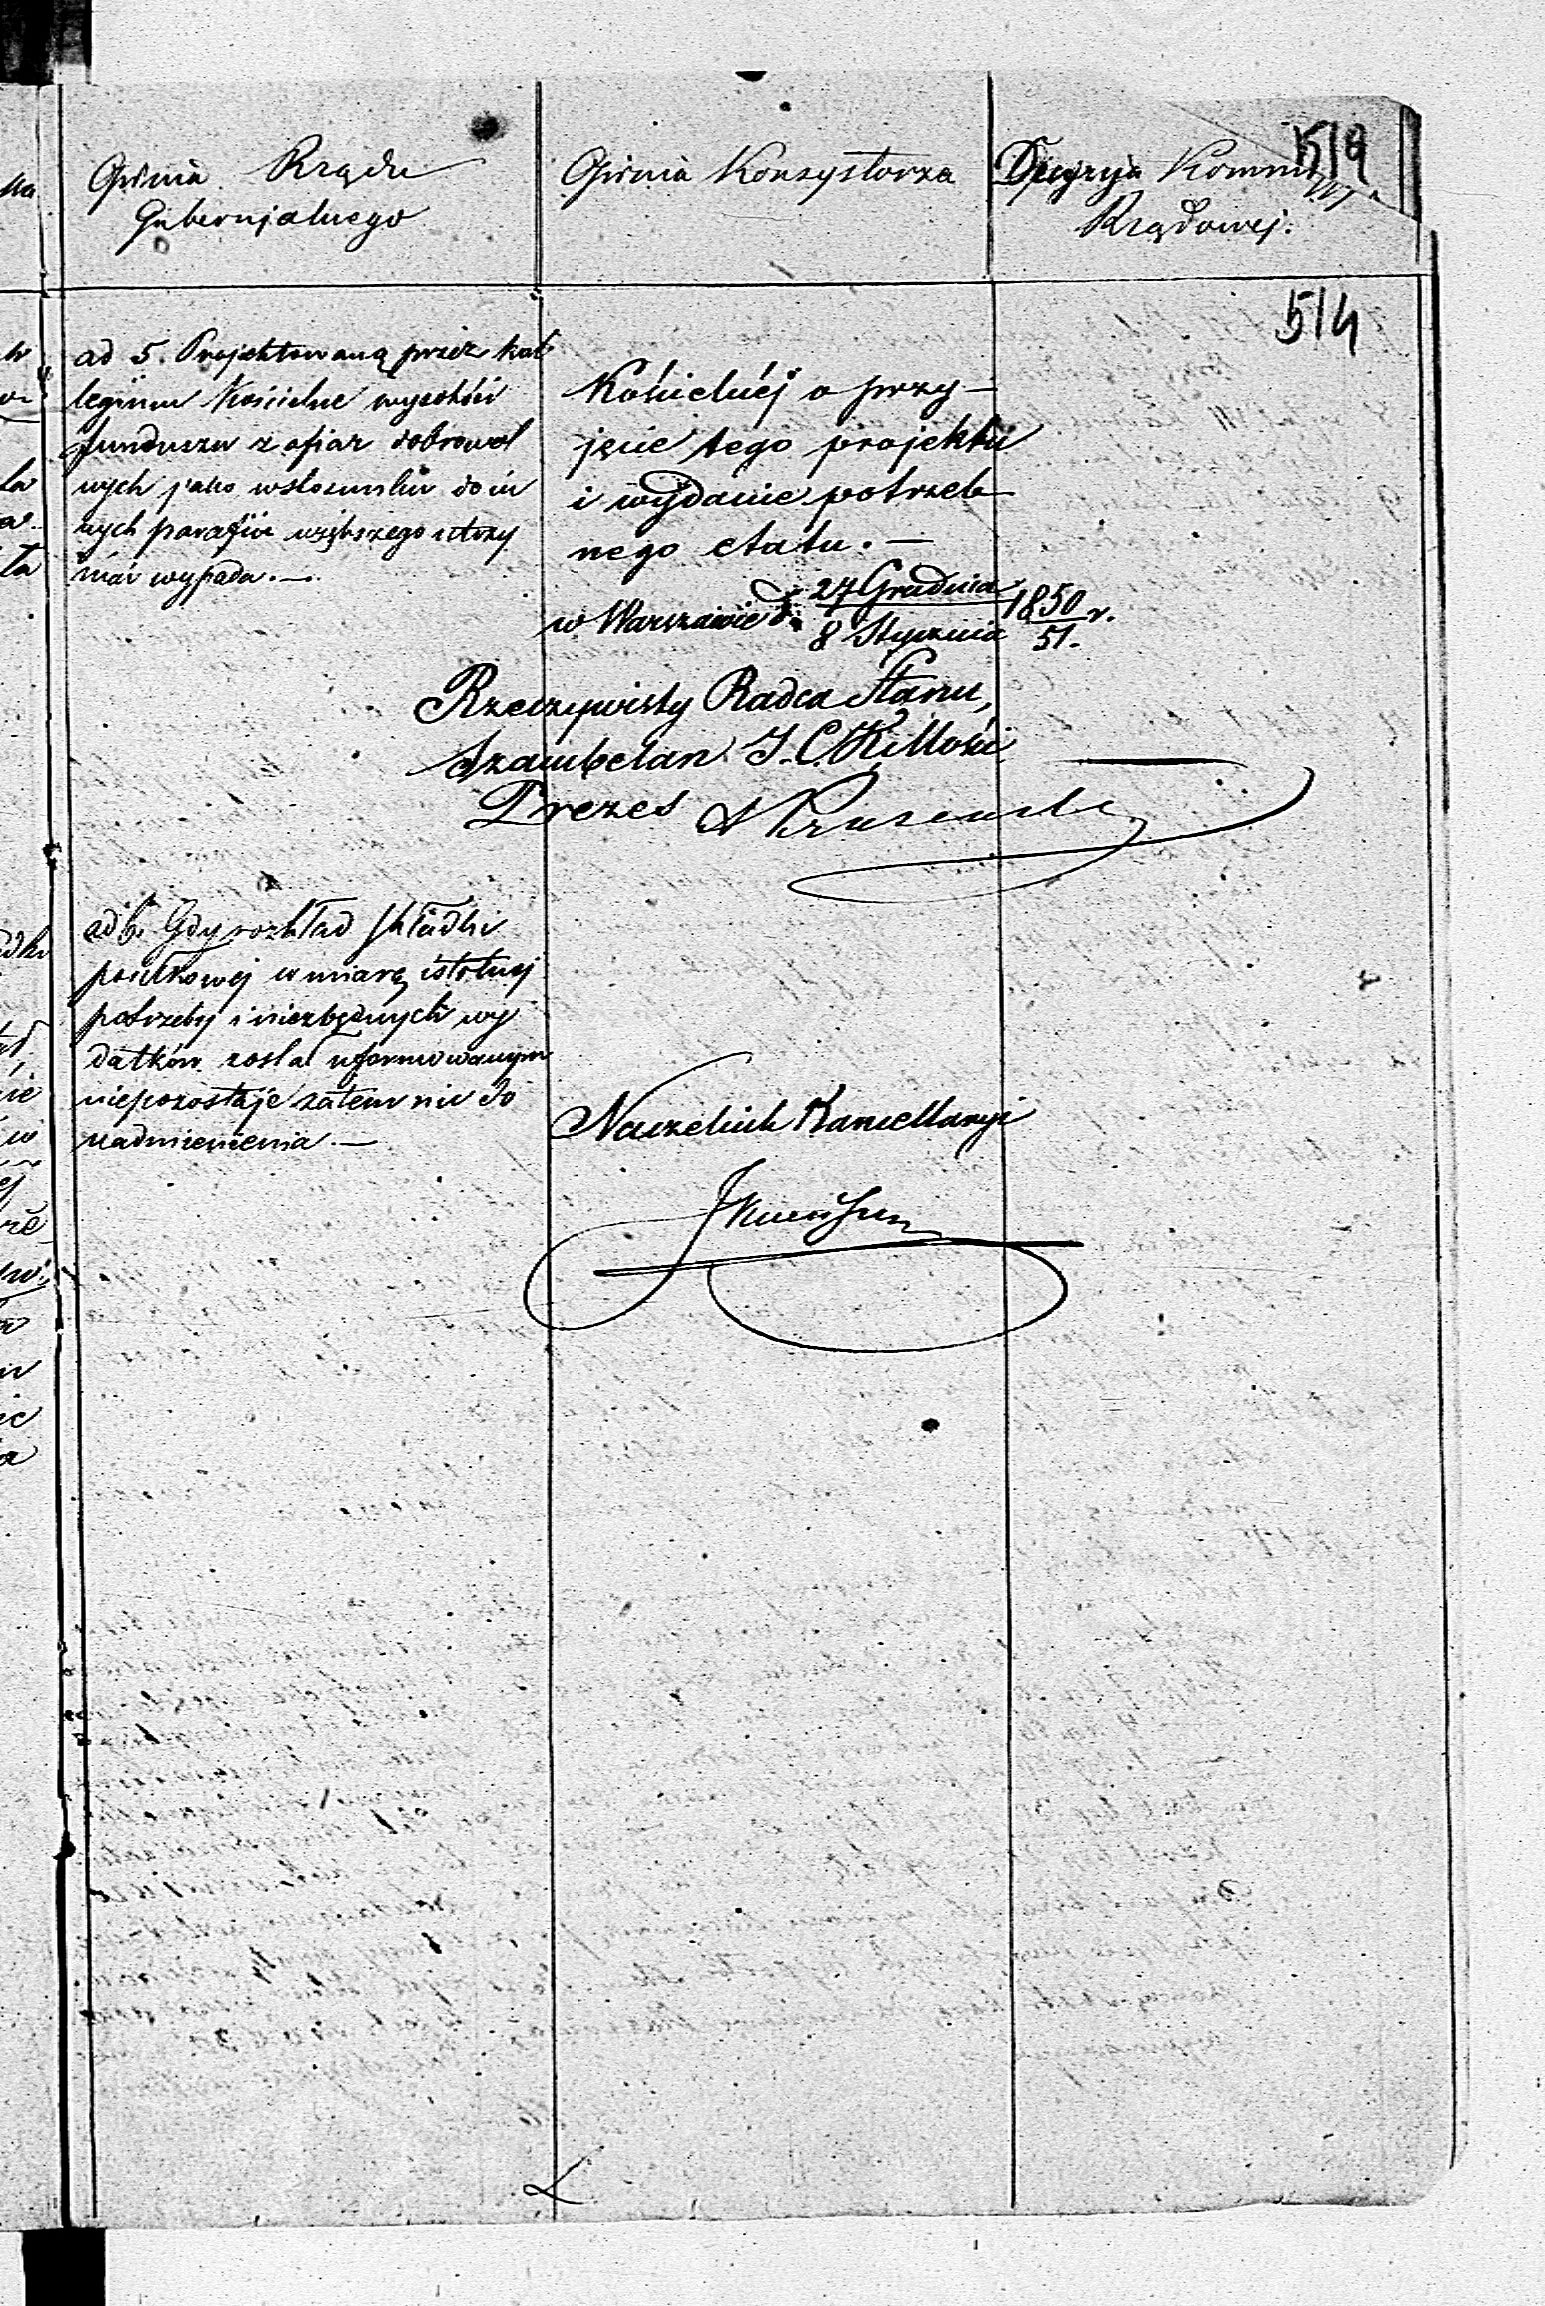 Opinia Rządu
Gubernjalnego
Opinia Konsystorza
Decyzyja Kommi
Rządowej.
519
514
ad 5. Projektowaną przez kol
legium Kościelne wysokość
funduszu z ofiar dobrowol
nych jako w stosunku do in
nych parafiów większego utrzy
mać wypada. —
Kościelnéj o przy—
jęcie tego projektu
i wydanie potrzeb—
nego etatu. —
w Warszawie d. 27 Grudnia / 8 Stycznia 1850/51. r.
Rzeczywisty Radca Stanu,
Szambelan J. C. K. Mości
Prezes
ad 6. Gdy rozkład składki
posiłkowej w miarę istotnej
potrzeby i niezbędnych wy
datków został uformowanym
niepozostaje zatem nic do
nadmienienia. —
Naczelnik Kancellaryi